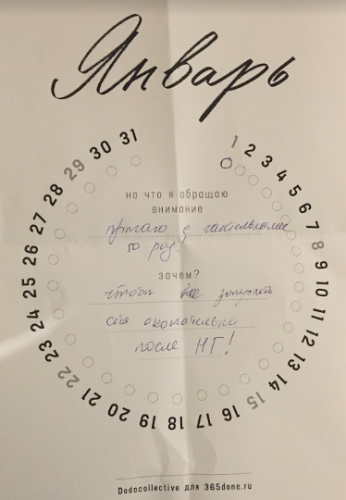 Январь
1 2 3 4 5 6 7 8 9 10 11 12 13 14 15 16 17 18 19 20 21 22 23 24 25 26 27 28 29 30 31
на что я обращаю
внимание
прыгаю с
50 раз
зачем?
чтобы не
себя окончательно
после НГ!
Dodocollective для 365done.ru